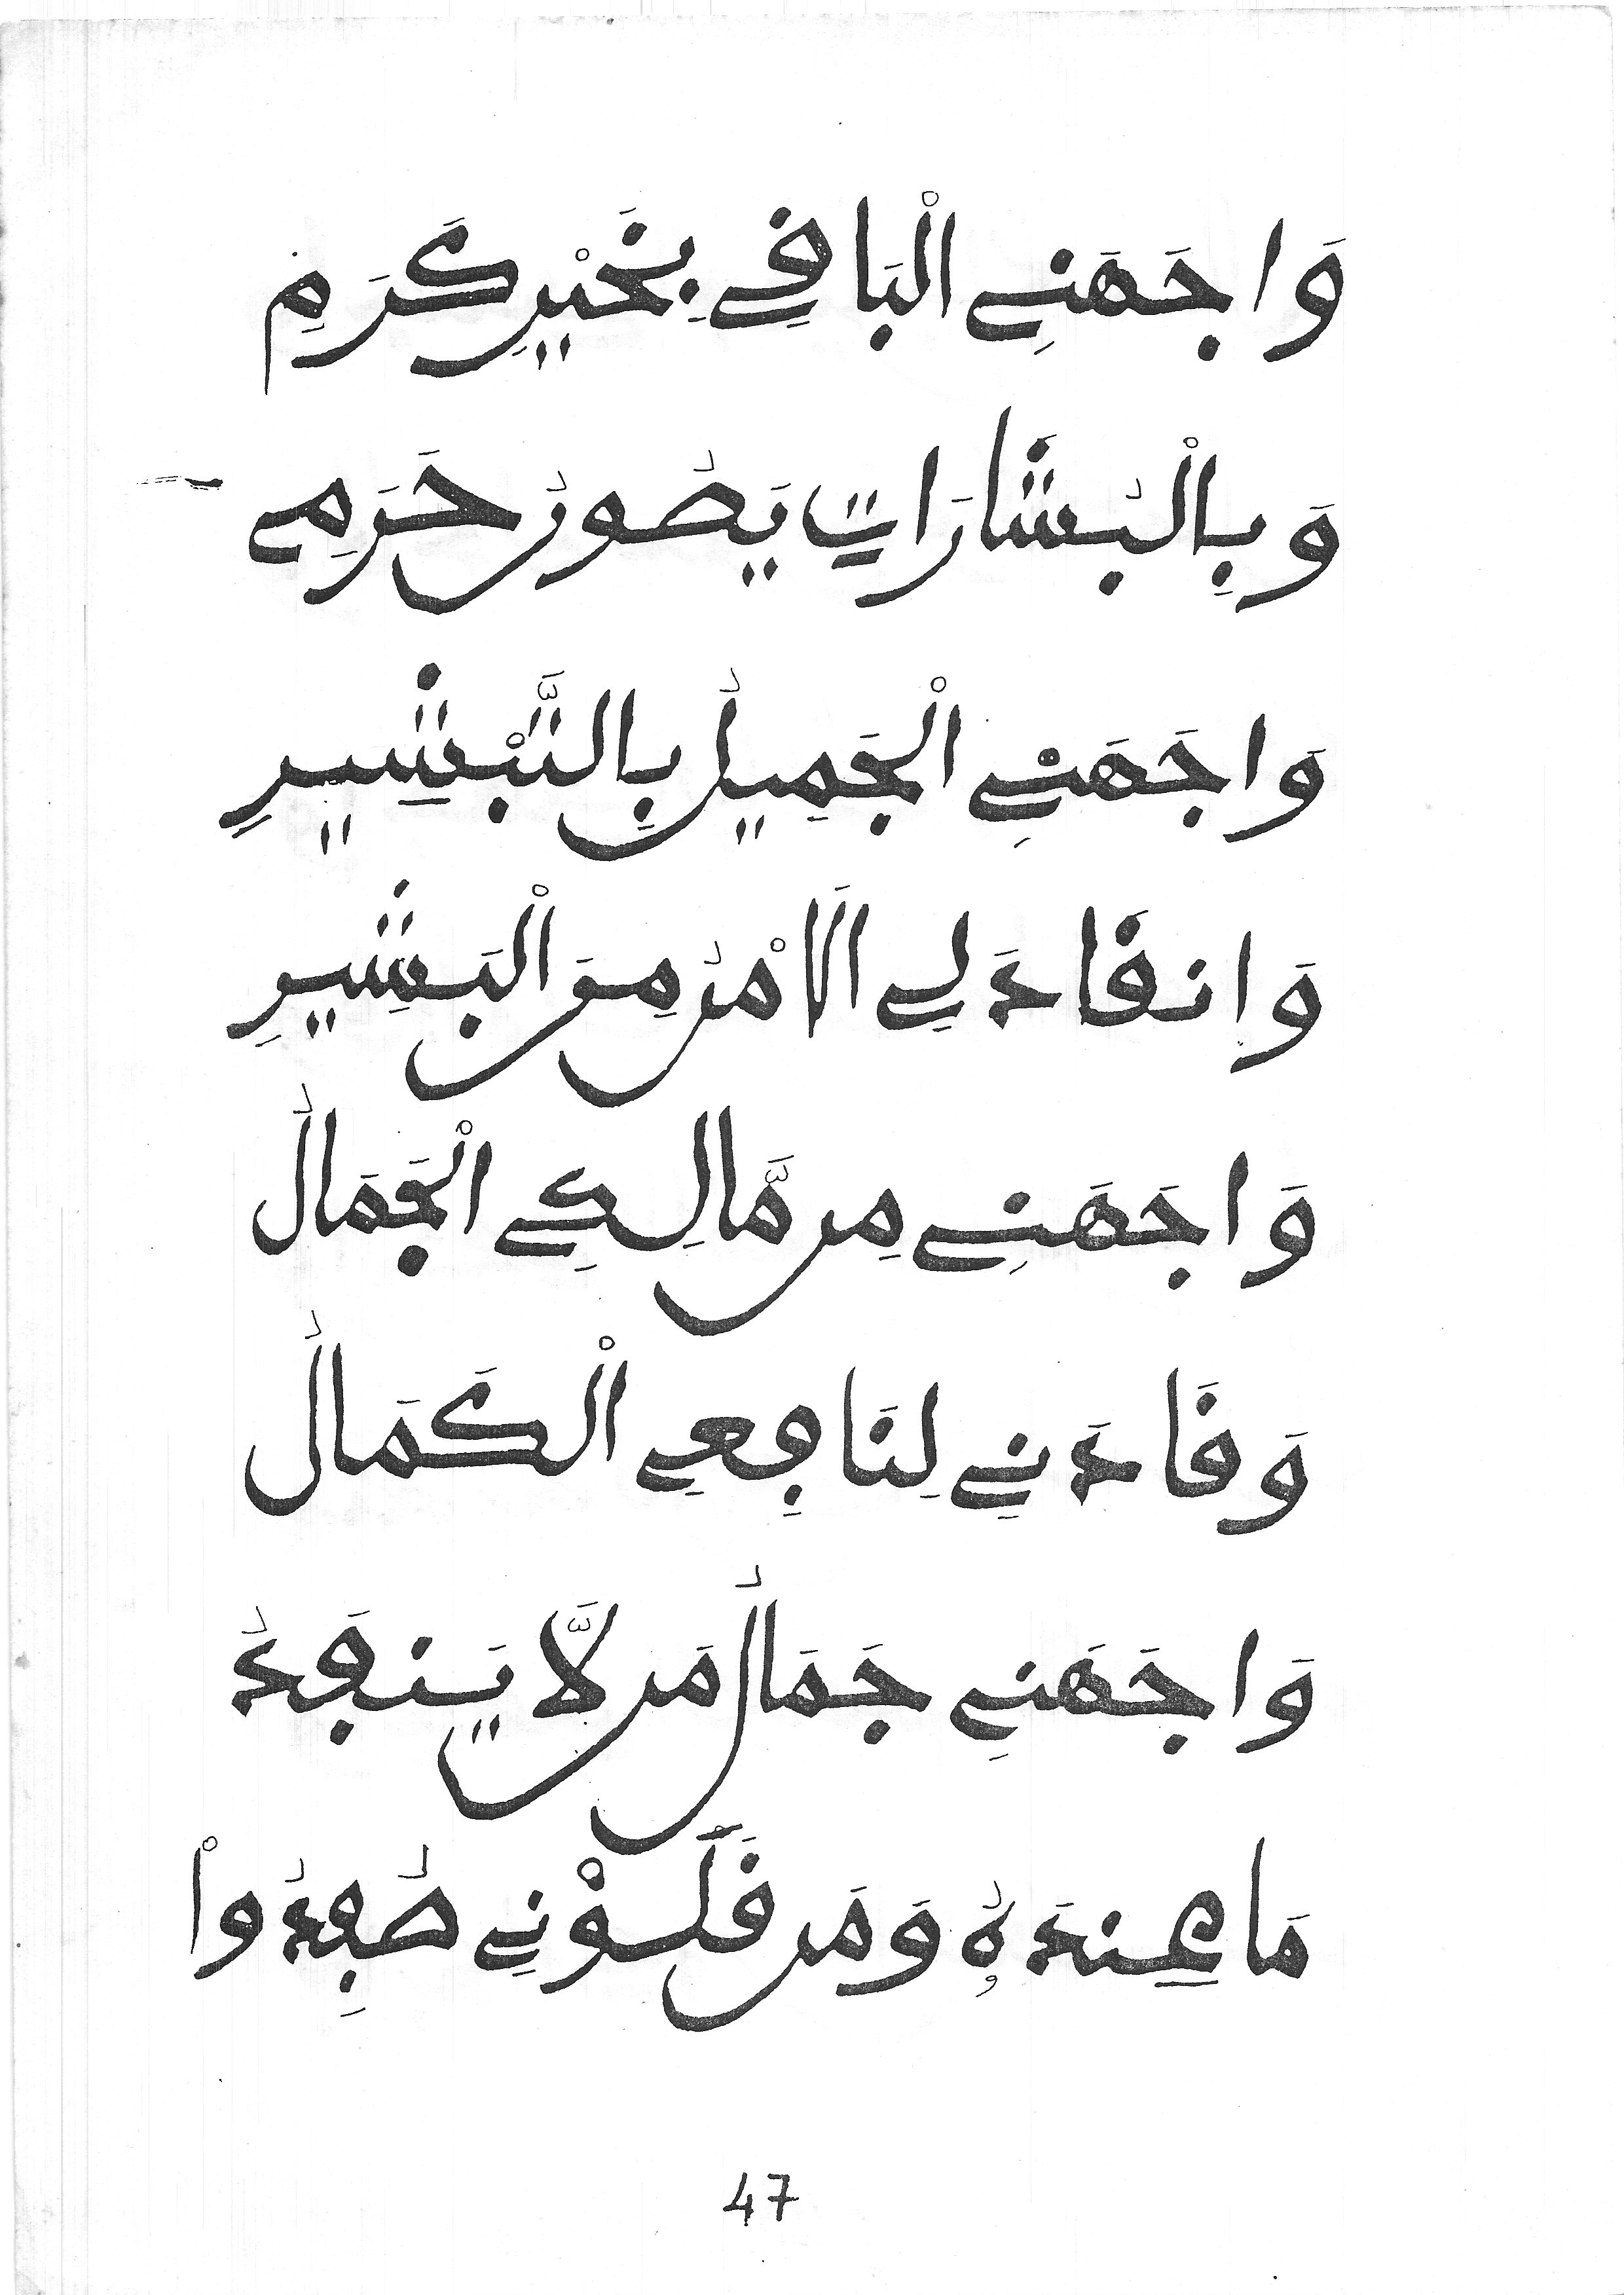 وَاجَهَنِے الْبَاقِے بِخَيْرِ كَرَمِ
وَبِالْبُشَارَاتِ يَصُونُ حَرَمِے
وَاجَهَنِے الْجَمِيلُ بِالتَّبْشِيرِ
وَانقَادَ لِے الَامْرُ مِنَ الْبَشِيرِ
وَاجَهَنِے مِن مَّالِكِے الْجَمَالُ
وَقَادَنِے لِنَافِعِے الْكَمَالُ
وَاجَهَنِے جَمَالُ مَن لَّا يَنفَدُ
مَا عِندَهُ وَمَن قَلَوْنِے صُفِدُواْ
47